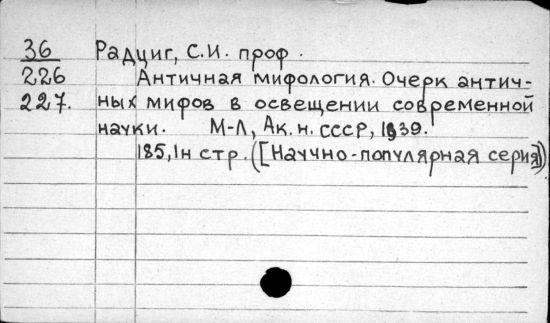 36 Радциг, С.И. проф.
226 Античная мифология. Очерк антич-
227. ных мифов в освещении современной
науки. М-Л, Ак. н. СССР, 1939.
185, 1н стр. ([Научно-популярная серия])